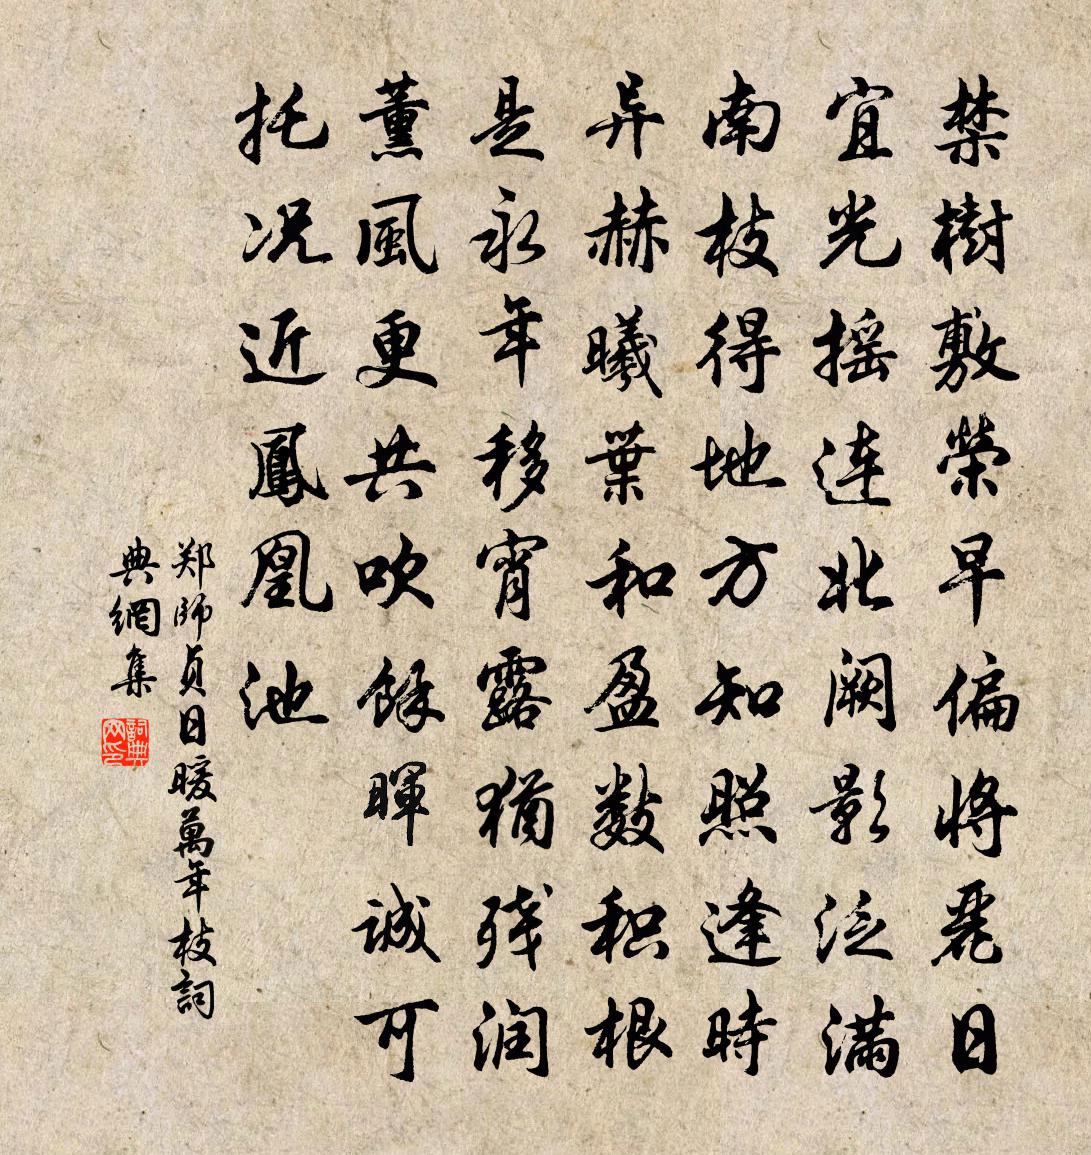 禁樹敷榮早偏將麗日
宜光摇連北阙影泛滿
南枝得地方知照逢時
异赫曦葉和盈數积根
是永年移宵露猶残润
薰風更共吹餘暉诚可
托况近鳳凰池
郑師贞日暖萬年枝詞
典網集
詞典
网印